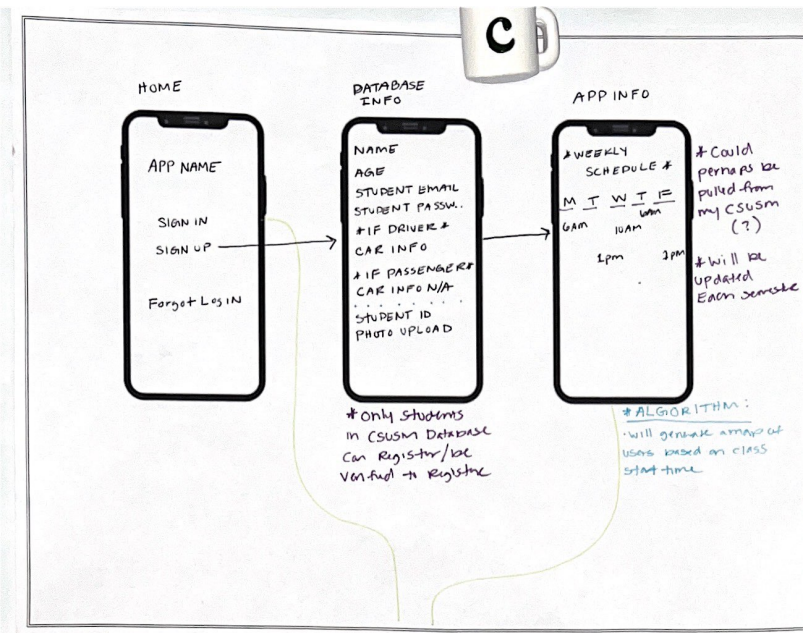 C
HOME
APP NAME
SIGN IN
SIGN UP
Forgot Log IN
DATABASE
INFO
NAME
AGE
STUDENT EMAIL
STUDENT PASSW..
*IF DRIVER*
CAR INFO
*IF PASSENGER*
CAR INFO N/A
. . . . . . .
STUDENT ID
PHOTO UPLOAD
*Only Students
in CSUSM Database
Can Register/be
Verified to Register
APP INFO
*WEEKLY
SCHEDULE*
M T W T F
6AM
6AM 10AM
1pm
*Could
perhaps be
pulled from
my CSUSM
(?)
*Will be
updated
Each semeste
*ALGORITHM:
·will generate a map of
users based on class
start time